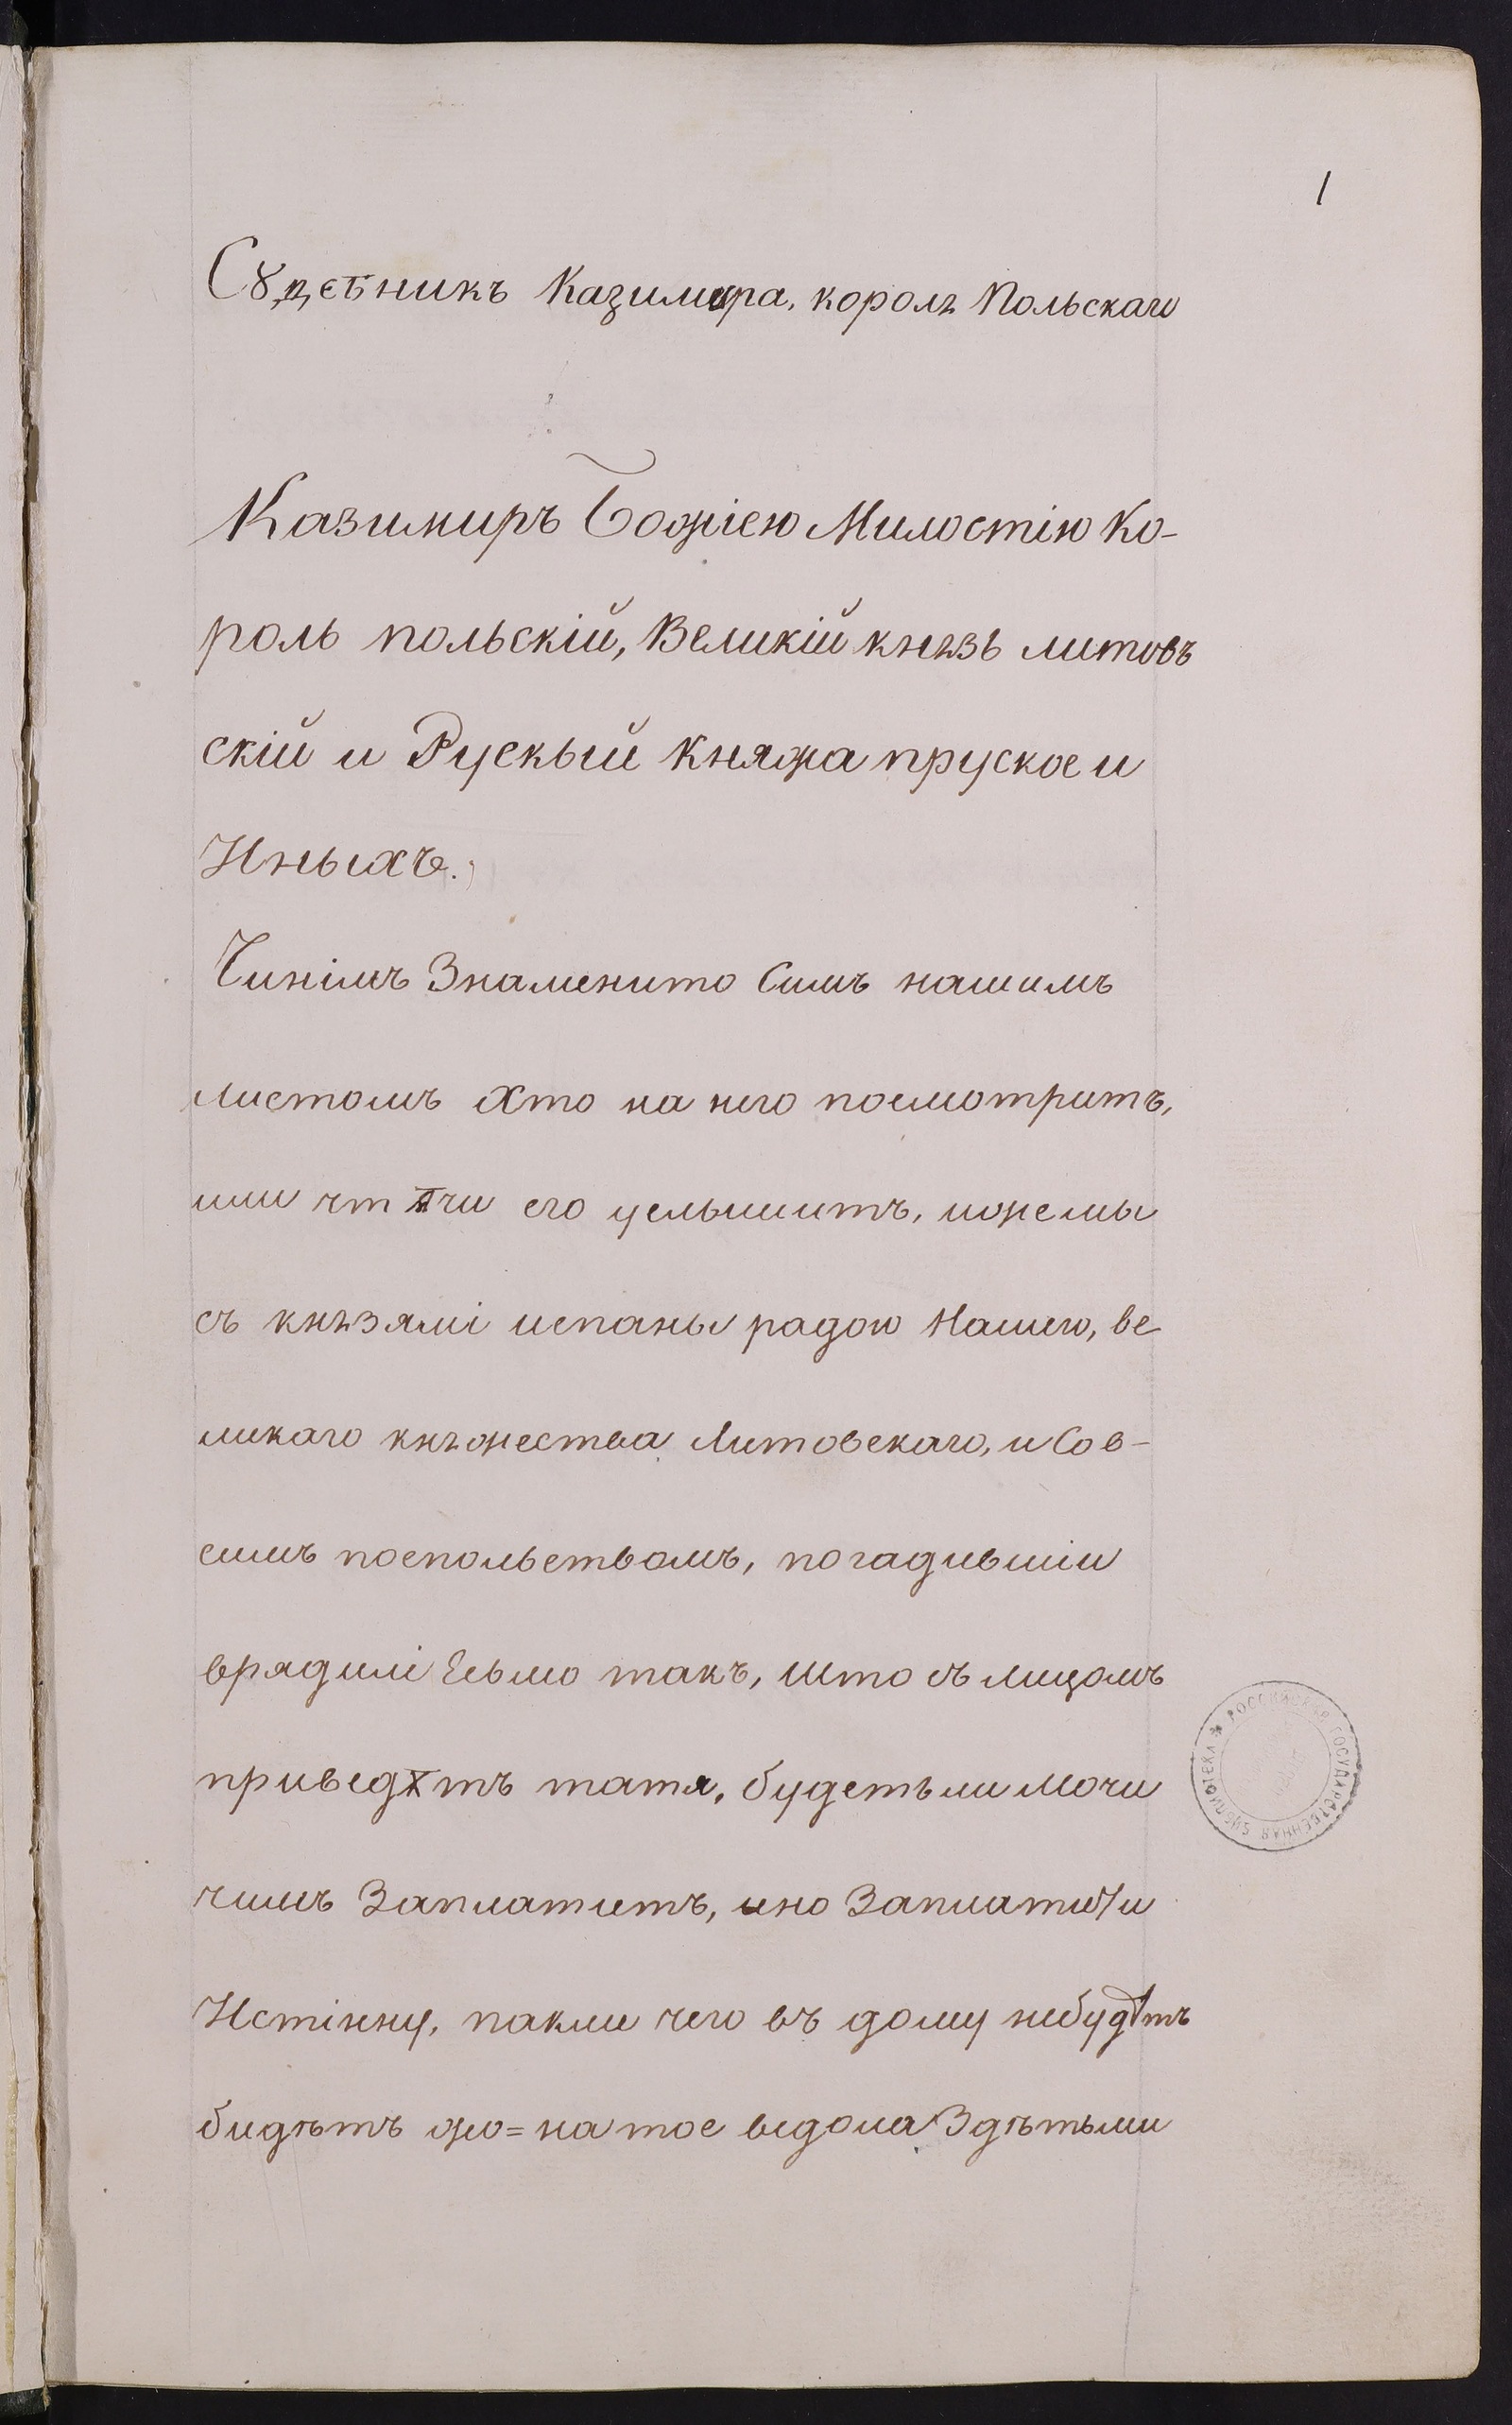 1
Сꙋдєбникъ Казимира, королѧ Польскаго
Казимиръ Божіею Милостію Ко-
роль польскій, Великій кнѧзь литовъ
скій и Рускый Княжа пруское и
Иныхъ.
Чинімъ Знаменито Симъ нашимъ
листомъ Хто на него посмотритъ,
или чтꙙчи его услышитъ, ижемы
съ кнѧзямі испаны радою Нашею, ве
ликаго кнѧжества Литовскаго, и Сов-
симъ поспольствомъ, погадившіи
врядилі Есьмо такъ, Што съ лицомъ
приведꙋтъ татя, будетьли мочи
чимъ Заплатитъ, ино Заплатити
Истінну, пакли чего въ дому небудетъ
бидѣтъ жо=на тое ведома Здѣтьми
РОССИЙСКАЯ ГОСУДАРСТВЕННАЯ БИБЛИОТЕКА